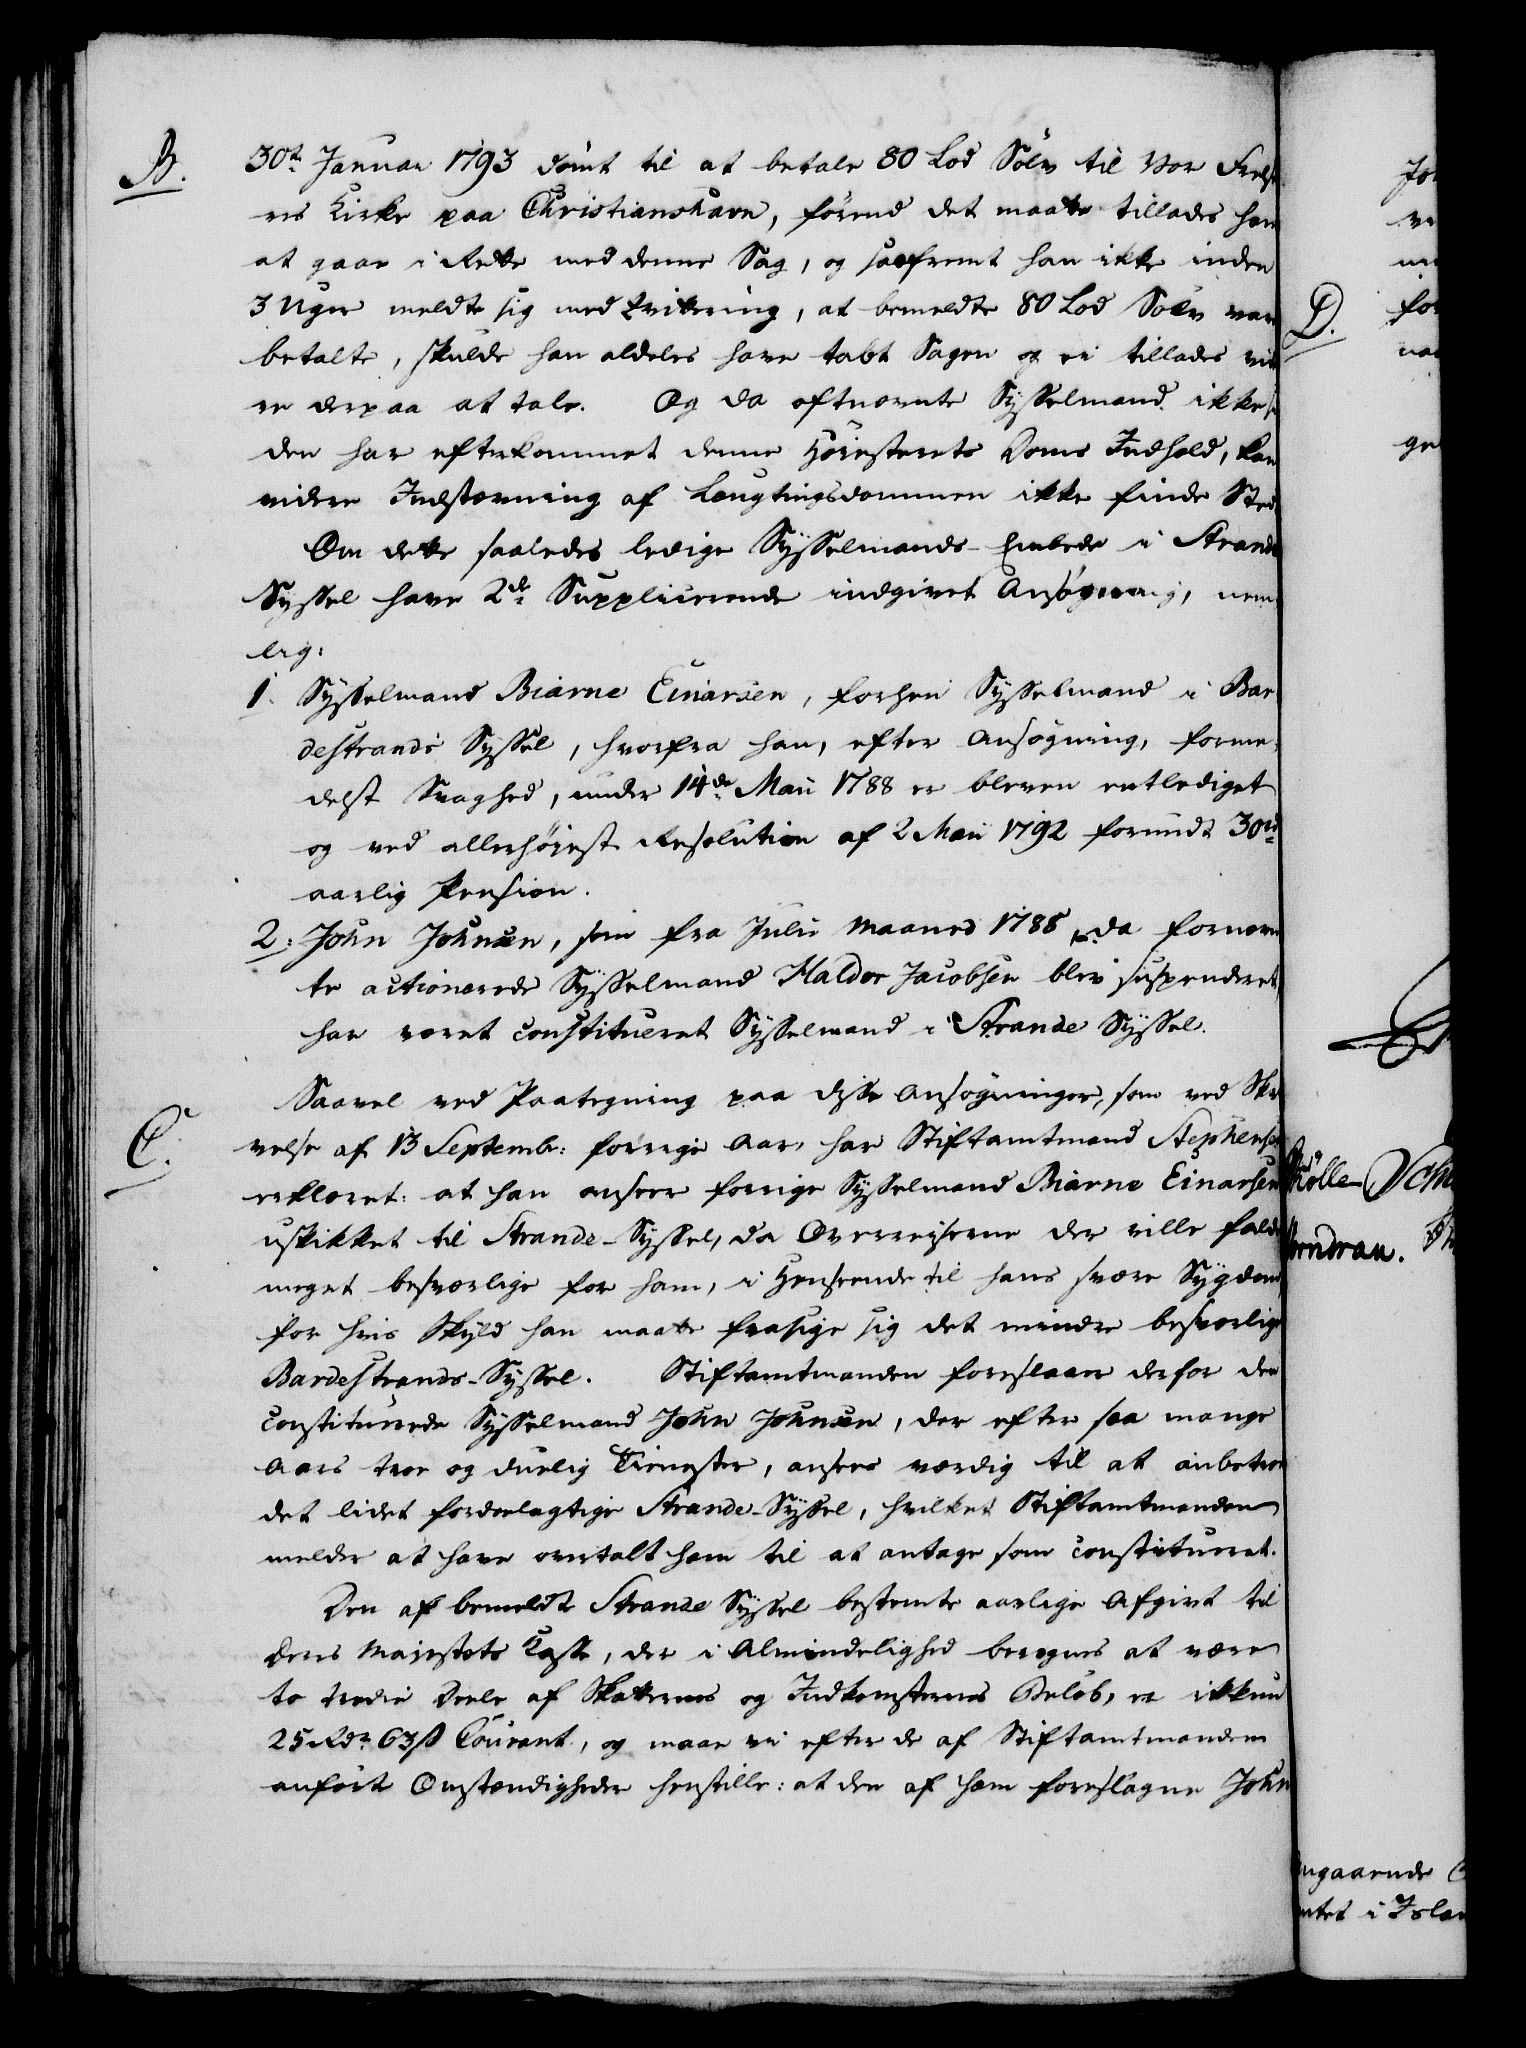 B.
30te Januar 1793 dömt til at betale 80 Lod Sölv til Vor Frels
ers Kirke paa Christianshavn, förend det maatte tillades ham
at gaae i Rette med denne Sag, og saafremt han ikke inden
3 Uger meldte sig med Qvittering, at bemeldte 80 Lod Sölv vare
betalte, skulde han aldeles have tabt Sagen og ei tillades vide
re derpaa at tale. Og da oftnævnte Sysselmand ikke si
den har efterkommet denne Höiesterets Doms Indhold, kan
videre Indstævning af Laugtingsdommen ikke finde Sted.
Om dette saaledes ledige Sysselmands-Embede i Strande
Syssel have 2de Supplicerende indgivet Ansøgning, nem
lig:
1. Sysselmand Biarne Einarsen, forhen Sysselmand i Bar
destrands Syssel, hvorfra han, efter Ansøgning, forme-
delst Svaghed, under 14de Maii 1788 er bleven entlediget
og ved allerhøieste Resolution af 2 Maii 1792 forundt 30 rd
aarlig Pension.
2. John Johnsen, som fra Julii Maaned 1788, da fornævn
te actionerede Sysselmand Haldor Jacobsen blev suspenderet,
har været constitueret Sysselmand i Strande Syssel.
C.
Saavel ved Paategning paa disse Ansøgninger, som ved Skri
velse af 13 Septembr: forrige Aar, har Stiftamtmand Stephensen
erklæret: at han anseer forrige Sysselmand Biarne Einarsen
uskikket til Strande-Syssel, da Overreiserne der ville falde
meget besværlige for ham, i Henseende til hans svære Sygdom,
for hvis Skyld han maatte frasige sig det mindre besværlige
Bardestrands-Syssel. Stiftamtmanden foreslaaer derfor den
constituerede Sysselmand John Johnsen, der efter saa mange
Aars troe og duelig Tienester, ansees værdig til at anbetroe
det lidet fordeelagtige Strande-Syssel, hvilket Stiftamtmanden
melder at have overtalt ham til at antage som constitueret.
Den af bemeldte Strande Syssel bestemte aarlige Afgivt til
Deres Majestæts Casse, der i Almindelighed beregnes at være
to tredie Deele af Skatternes og Indkomsternes Beløb, er ikkun
25 Rdr 63 ß Courant, og maae vi efter de af Stiftamtmanden
anførte Omstændigheder henstille: at den af ham foreslagne John
D.